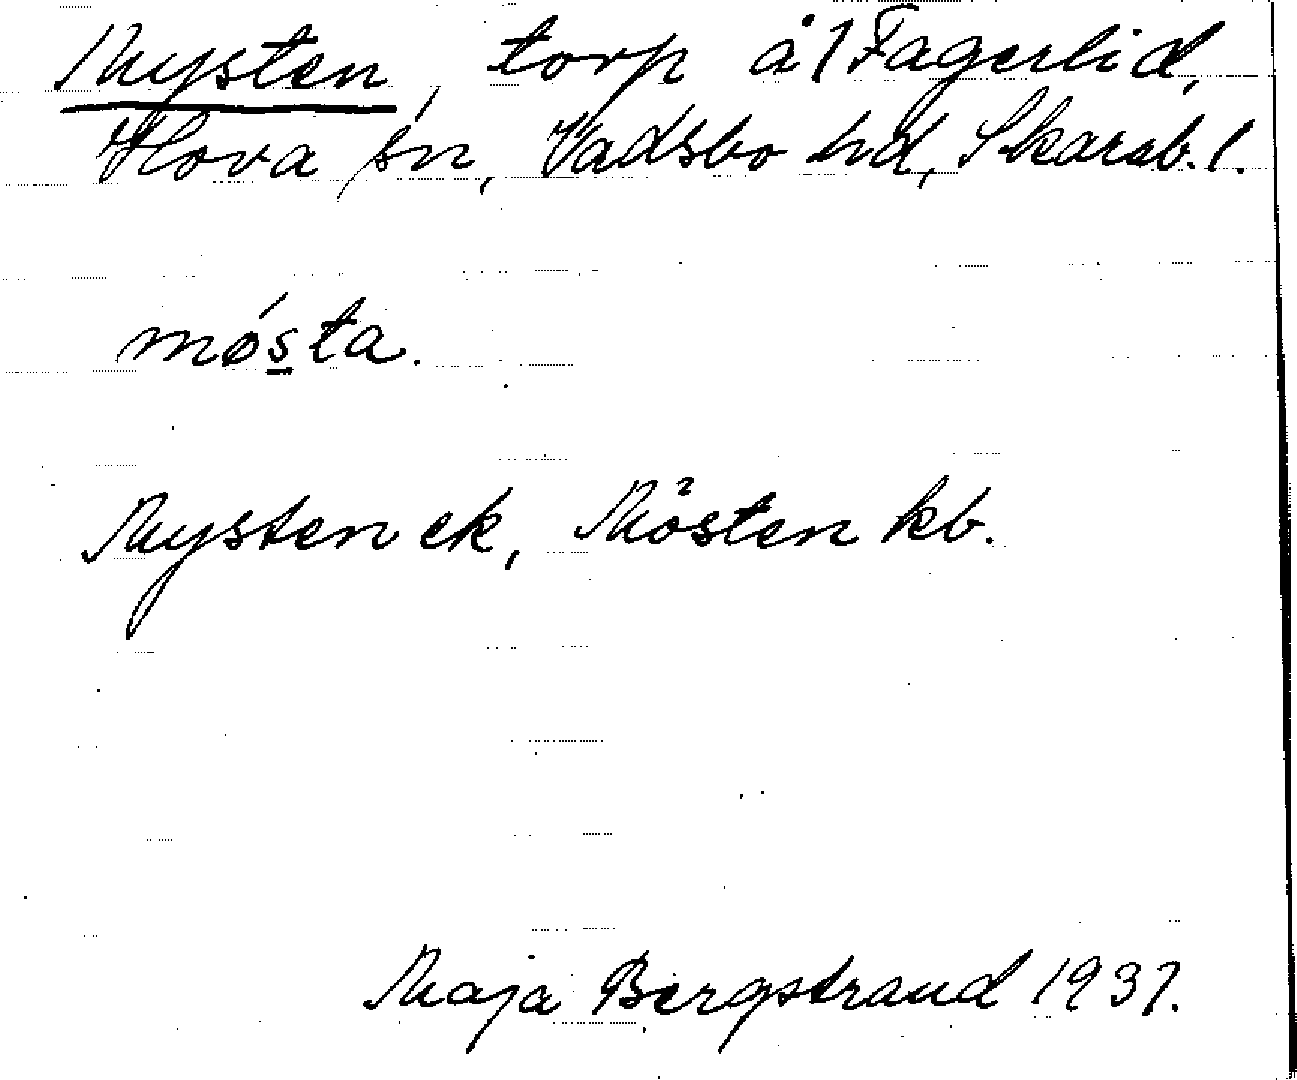 Mysten, torp å 1 Fagerlid,
Hova sn, Vadsbo hd, Skarab. l.
mǿsta.
Mysten ek, Mösten kb.
Maja Bergstrand 1937.